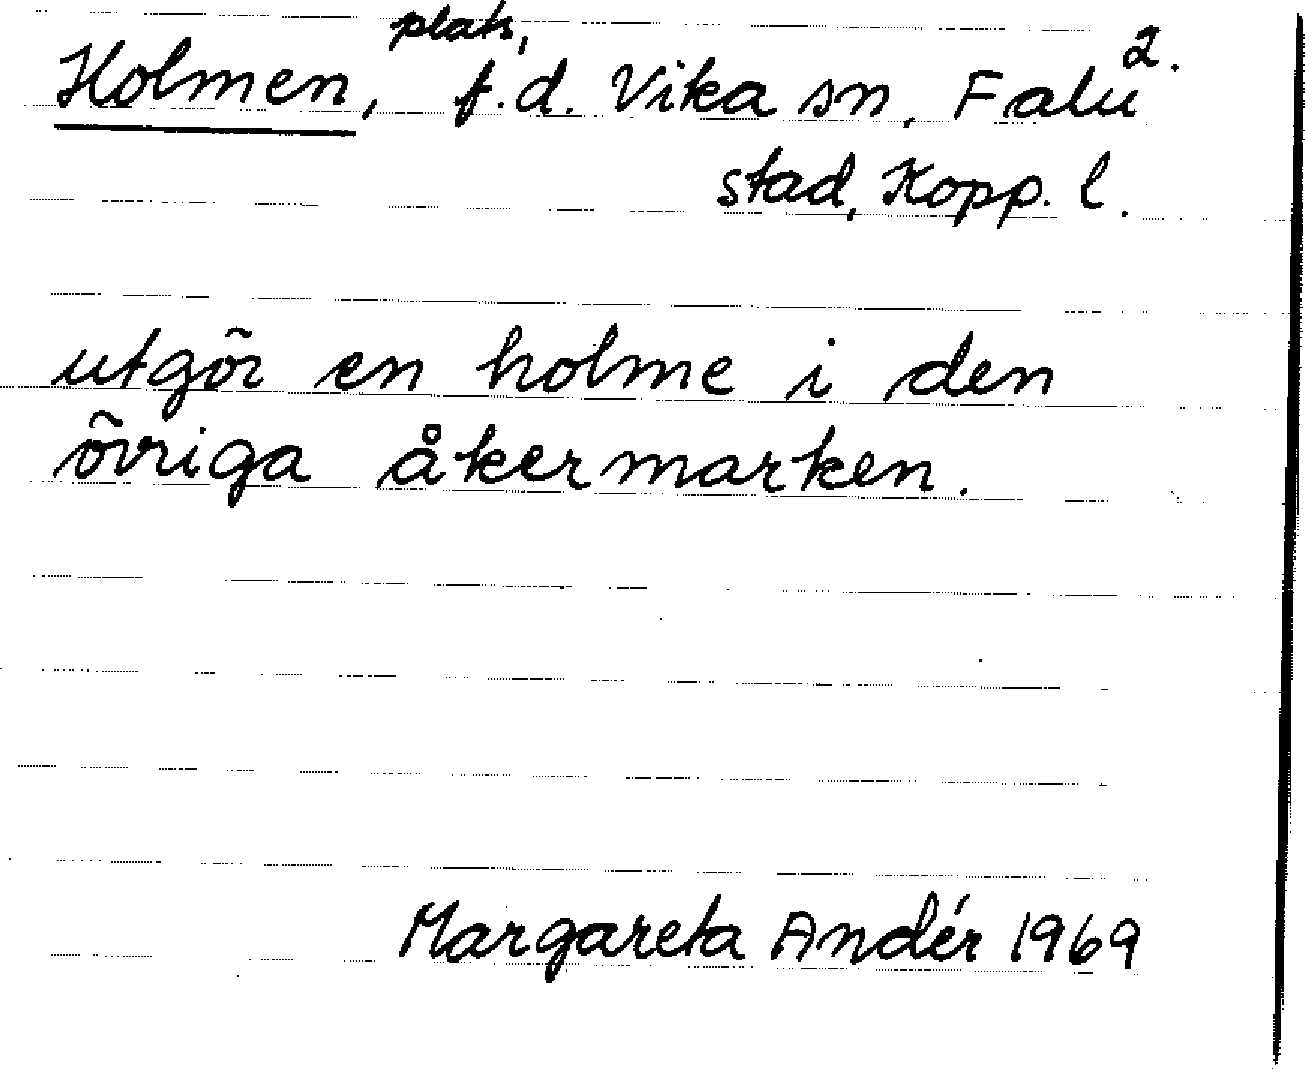 Holmen, plats, f.d. Vika sn, Falu 2.
stad, Kopp. l.
utgör en holme i den
övriga åkermarken.
Margareta Andér 1969